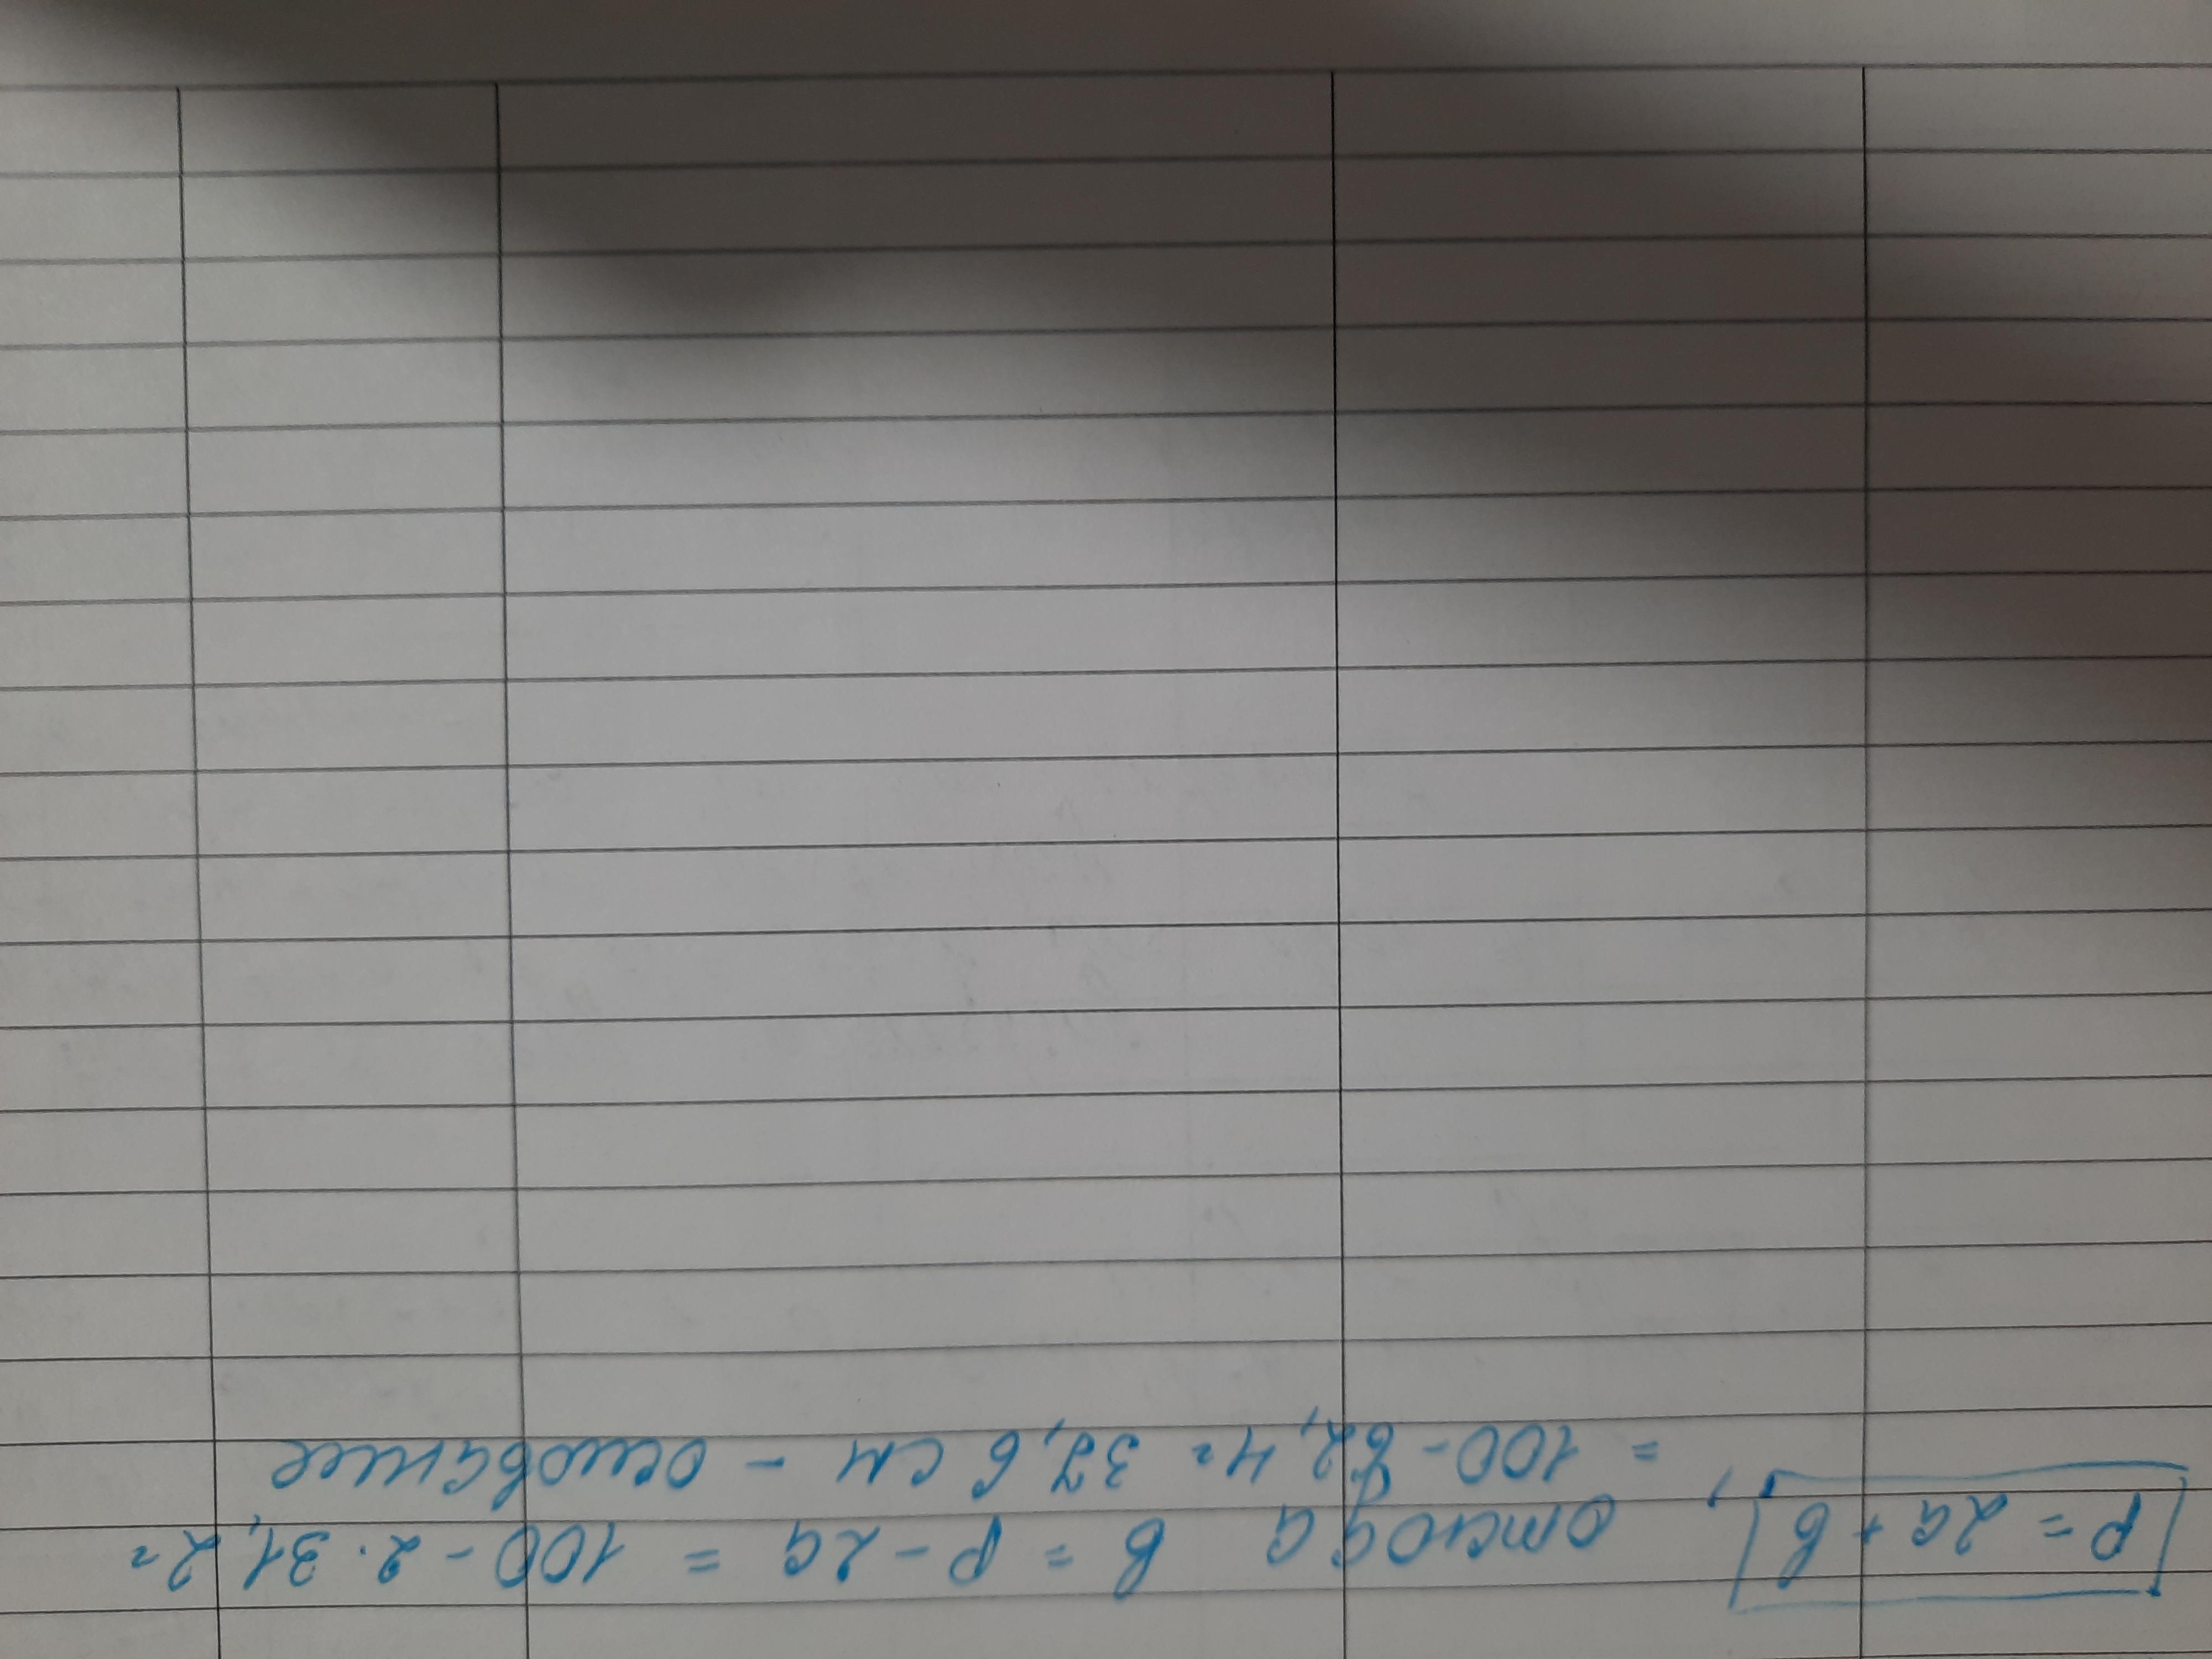 P = 2a + b, отсюда b = P - 2a = 100 - 2 · 31,2 =
= 100 - 62,4 = 37,6 см - основание